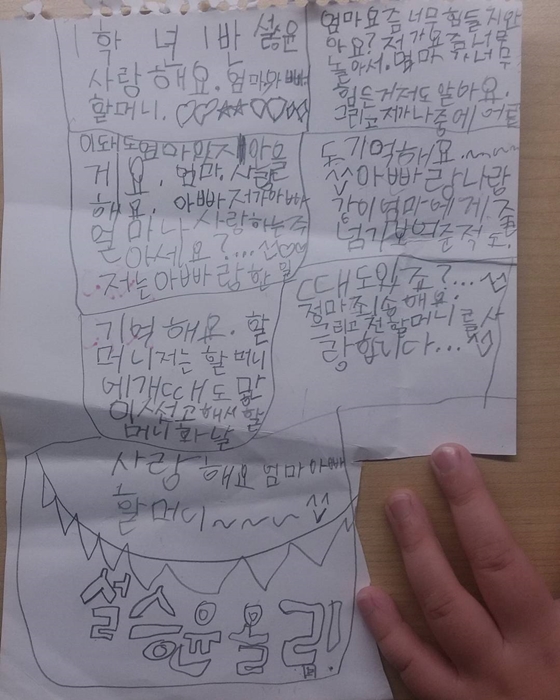 1 학 년 1반 설윤
사랑해요. 엄마아빠
할머니. ♡♡☆☆♡♡
엄마 요즘 너무 힘들지와
아요? 저가 요즘 너무
놀아서. 엄마 너무
힘든거저도알아요.
그리고 저가 나중에 어른
이돼도 엄마안지 아을
거 요. 엄마. 사랑
해요. 아빠 저가아빠
얼마나 사랑하는주
아세요?...
저는 아빠 랑 한 말
도 기억해요.~~~~
아빠랑 나랑
같이 엄마에게 줄
넘기 보여준적도
기억해요. 할
머니저는 할머니
에개 때도
할
머니 화날
때도있죠?...
정마죄송해요.
그리고 전할머니를사
랑합니다...
사랑 해요 엄마 아빠
할머니~~~~
설승윤올리